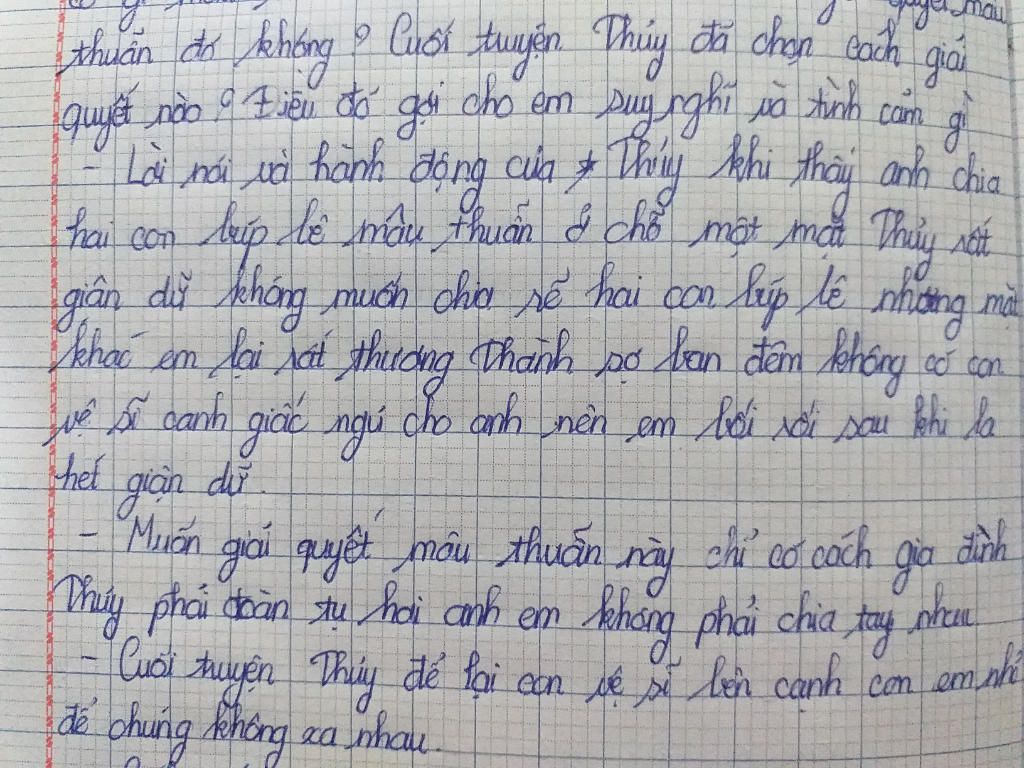 quyết mâu
thuẫn đó không? Cuối truyện Thủy đã chọn cách giải
quyết nào? Điều đó gợi cho em suy nghĩ và tình cảm gì
- Lời nói và hành động của Thủy khi thấy anh chia
hai con búp bê mâu thuẫn ở chỗ một mặt Thủy rất
giân dữ không muốn chia rẽ hai con búp bê nhưng mặt
khác em lại rất thương Thành sợ ban đêm không có con
vệ sĩ canh giấc ngủ cho anh nên em bối rối sau khi la
hét giận dữ.
- Muốn giải quyết mâu thuẫn này chỉ có cách gia đình
Thủy phải đoàn tụ hai anh em không phải chia tay nhau
- Cuối truyện Thủy để lại con vệ sĩ bên cạnh con em nhỏ
để chúng không xa nhau.